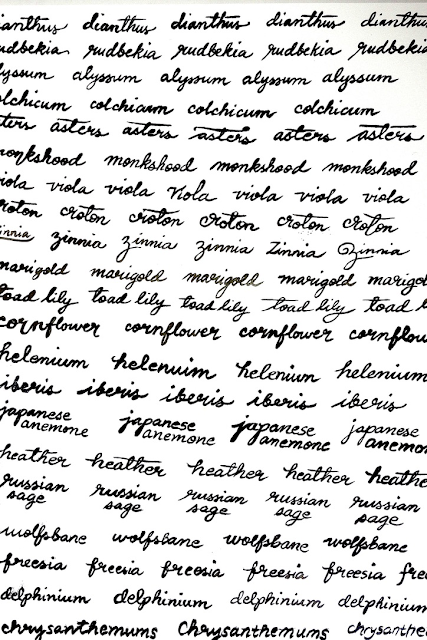 ianthus dianthus dianthus dianthus dianthus
udbekia rudbekia rudbekia rudbekia rudbekia
lyssum alyssum alyssum alyssum alyssum
olchicum colchicum colchicum colchicum
ters asters asters asters asters asters
monkshood monkshood monkshood monkshood
iola viola viola viola viola viola viola
roton croton croton croton croton croton
innia zinnia zinnia zinnia zinnia Zinnia
marigold marigold marigold marigold marigol
toad lily toad lily toad lily toad lily toad l
cornflower cornflower cornflower cornflow
helenium helenuim helenium helenium
iberis iberis iberis iberis iberis
japanese japanese japanese japanese
anemone anemone anemone anemon
heather heather heather heather heathe
russian russian russian russian russian
sage sage sage sage sage
wolfsbane wolfsbane wolfsbane wolfsbane
freesia freesia freosia freesia freesia free
delphinium delphinium delphinium delphinium
chrysanthemums Chrysanthemums chrysanthem